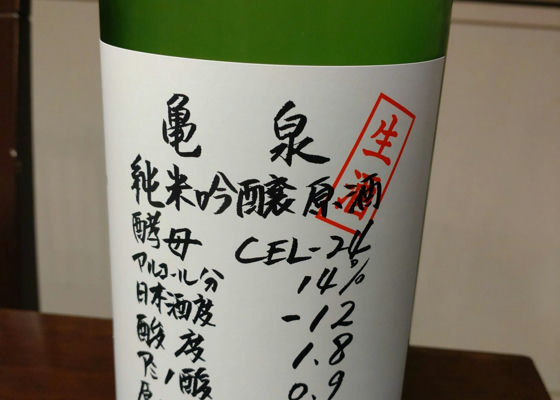 亀泉
生酒
純米吟醸原酒
酵母 CEL-24
アルコール分 14%
日本酒度 -12
酸度 1.8
アミノ酸 0.9